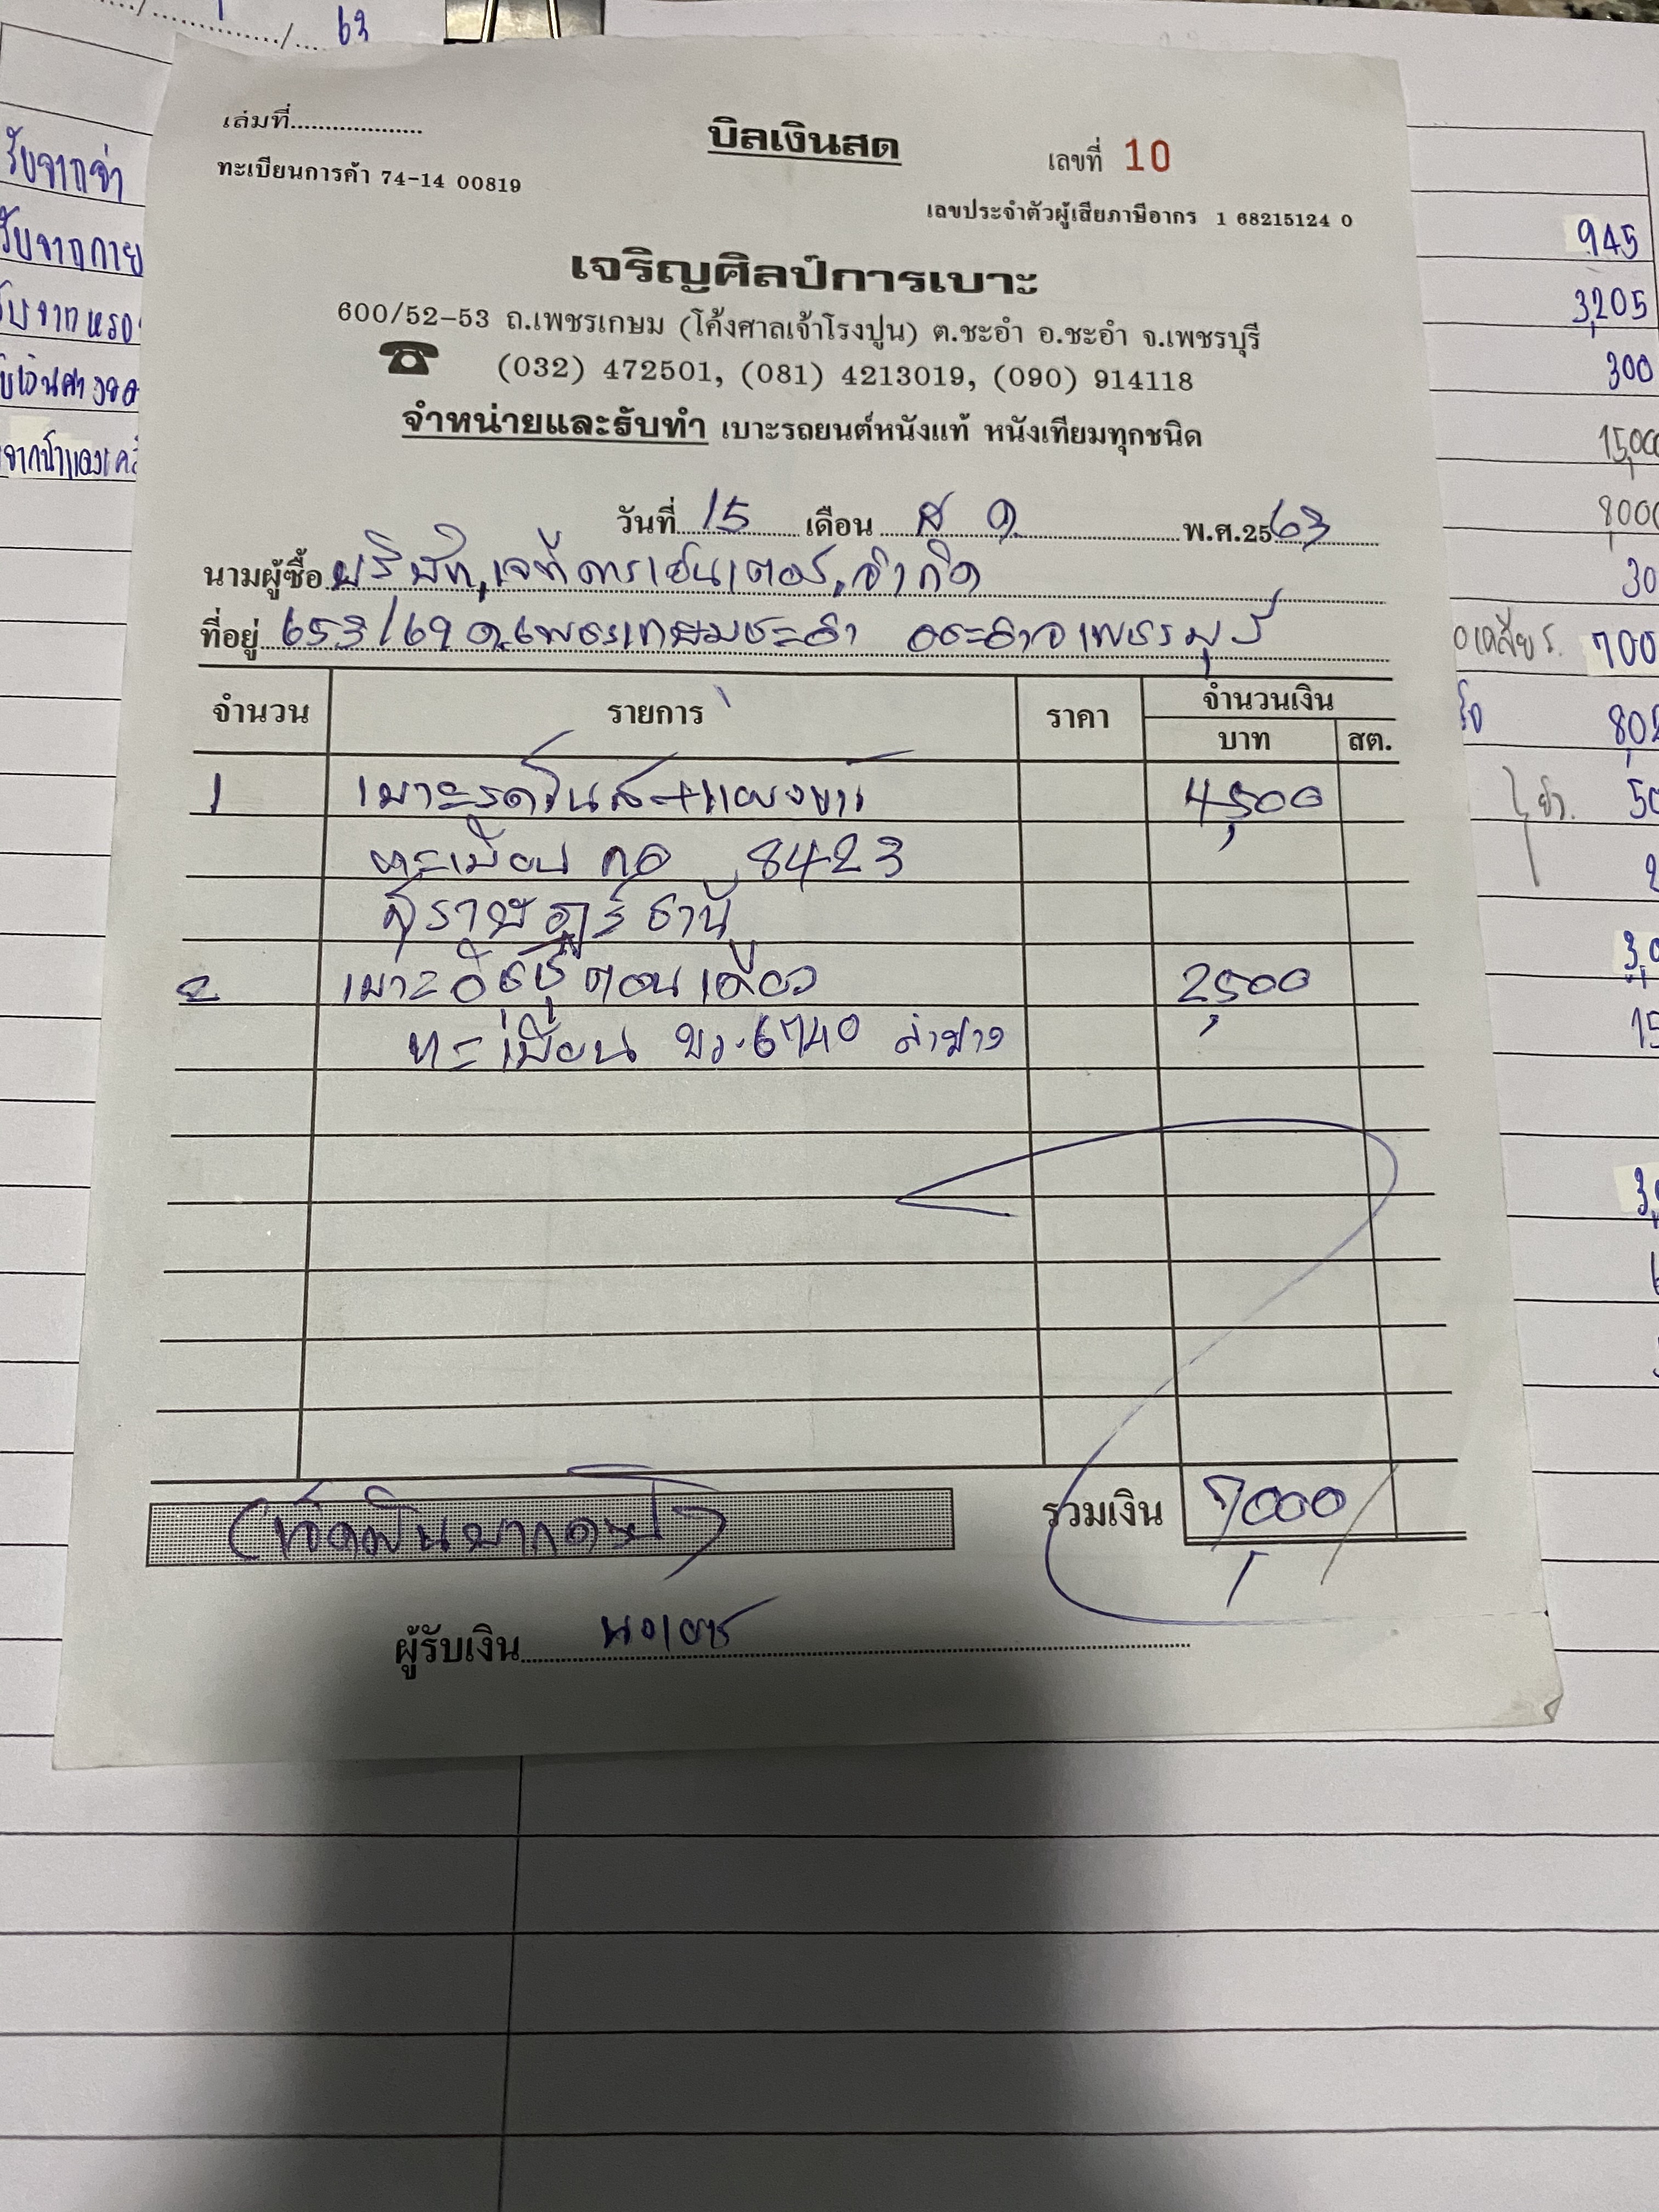 เล่มที่...................
บิลเงินสด
เลขที่ 10
ทะเบียนการค้า 74-14 00819
เลขประจำตัวผู้เสียภาษีอากร 1 68215124 0
เจริญศิลป์การเบาะ
600/52-53 ถ.เพชรเกษม (โค้งศาลเจ้าโรงปูน) ต.ชะอำ อ.ชะอำ จ.เพชรบุรี
(032) 472501, (081) 4213019, (090) 914118
จำหน่ายและรับทำ เบาะรถยนต์หนังแท้ หนังเทียมทุกชนิด
วันที่ 15 เดือน ส ค พ.ศ.2563
นามผู้ซื้อ บริษัท เจที คาร เซ็นเตอร์ จำกัด
ที่อยู่ 653/69 ถ.เพชรเกษม ชะอำ อ ชะอำ จ เพชรบุรี
จำนวน รายการ ราคา จำนวนเงิน
บาท สต.
1 เบาะรถ + แผงข้าง 4,500
ทะเบียน กอ 8423
สุราษฎร์ธานี
2 เบาะอีซูซุตอนเดียว 2,500
ทะเบียน บว.6740 ลำปาง
(เจ็ดพันบาทถ้วน)
รวมเงิน 7,000
ผู้รับเงิน
63
รับจาก
945
3,205
300
15,000
8,000
30
700